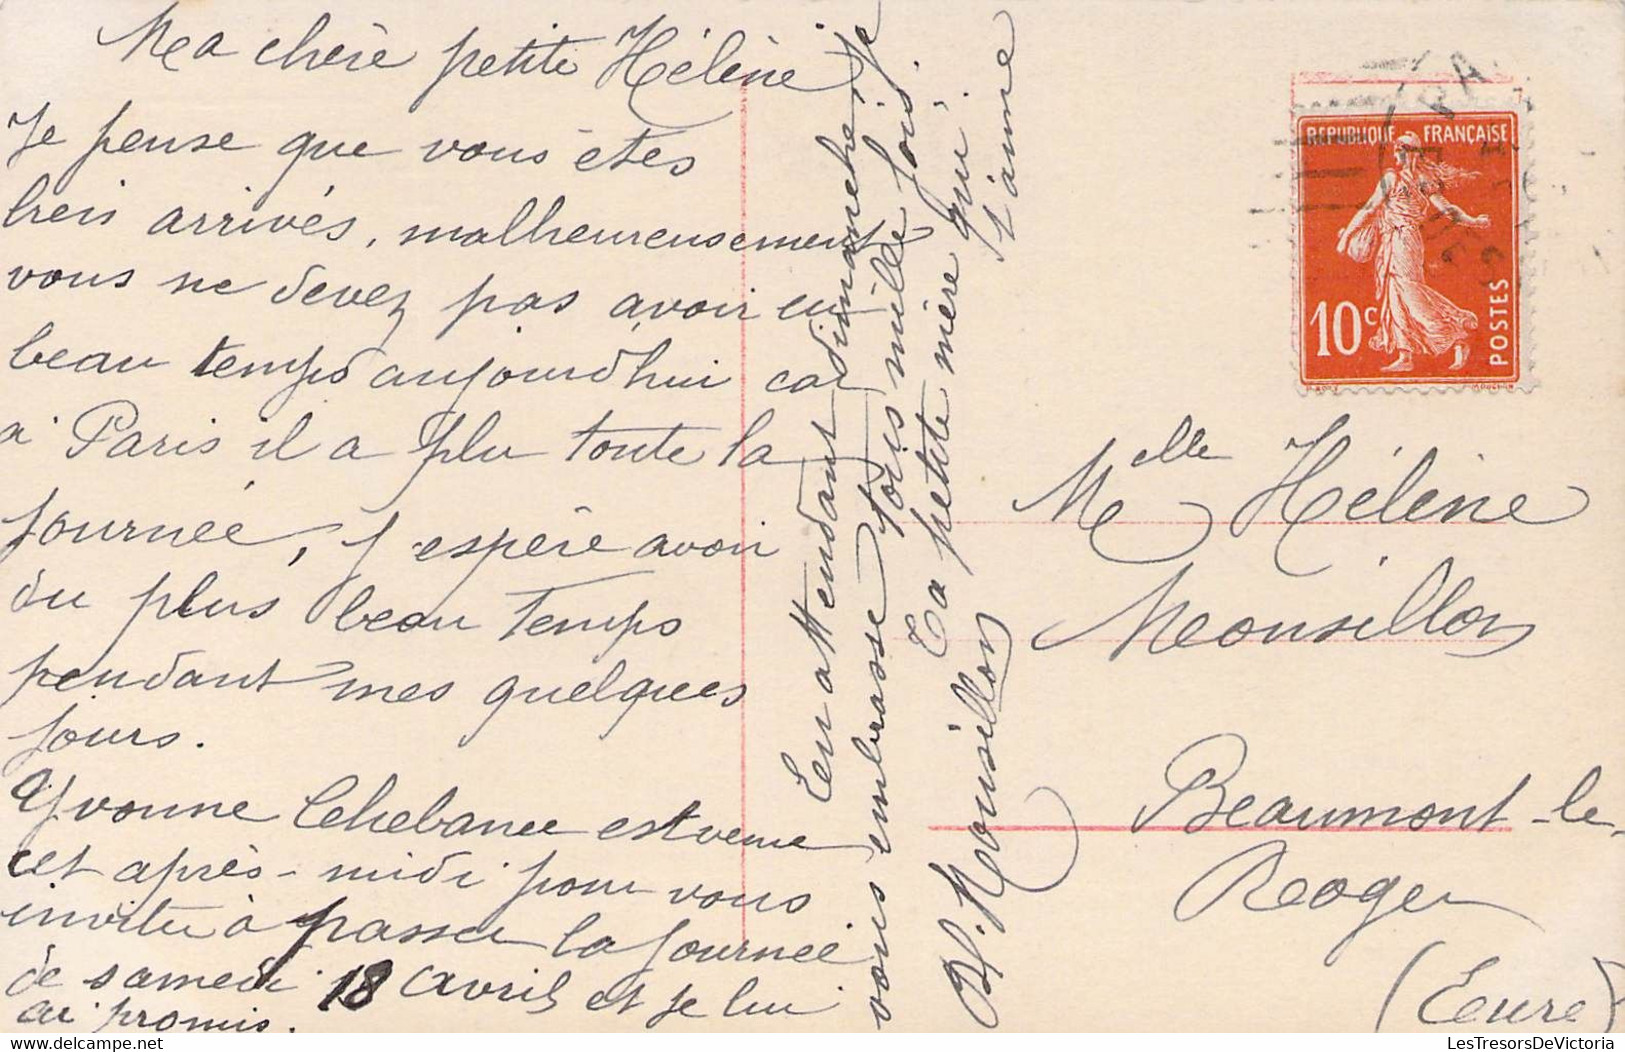 Ma chère petite Hélène
Je pense que vous êtes
bien arrivés, malheureusement
vous ne devez pas avoir eu
beau temps aujourd'hui car
à Paris il a plu toute la
journée, j'espère avoir
du plus beau temps
pendant mes quelques
jours.
Yvonne est venue
cet après-midi pour vous
inviter à passer la journée
de samedi 18 avril et je lui
ai promis.
En attendant dimanche, je
vous embrasse tous mille fois.
Ta petite mère qui
t'aime
Bl. Monsillon
REPUBLIQUE FRANÇAISE
10c POSTES
Melle Hélène
Monsillon
Beaumont-le-
Roger
(Eure)
LesTresorsDeVictoria